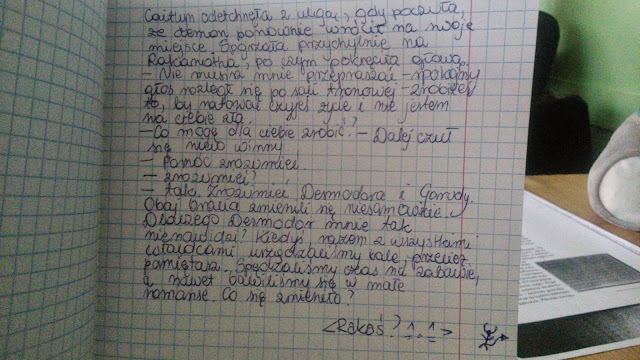 Caitlyn odetchnęła z ulgą, gdy poczuła
że demon ponownie wrócił na swoje
miejsce. Spojrzała przychylnie na
Rakanotha, po czym pokręciła głową.
– Nie musisz mnie przepraszać – spokojny
głos rozległ się po sali tronowej – zrobiłeś
to, by ratować czyjeś życie i nie jestem
na ciebie zła.
– Co mogę dla ciebie zrobić? – Dalej czuł
się nieco winny.
– Pomóc zrozumieć.
– Zrozumieć?
– Tak. Zrozumieć Dermodora i Garudy.
Obaj bracia zmienili się niesamowicie.
Dlaczego Dermodor mnie tak
nienawidzi? Kiedyś razem z wszystkimi
władcami urządzaliśmy bale, przecież
pamiętasz. Spędzaliśmy czas na zabawie,
a nawet bawiliśmy się w małe
romanse. Co się zmieniło?
<Rakoś? ^.^>